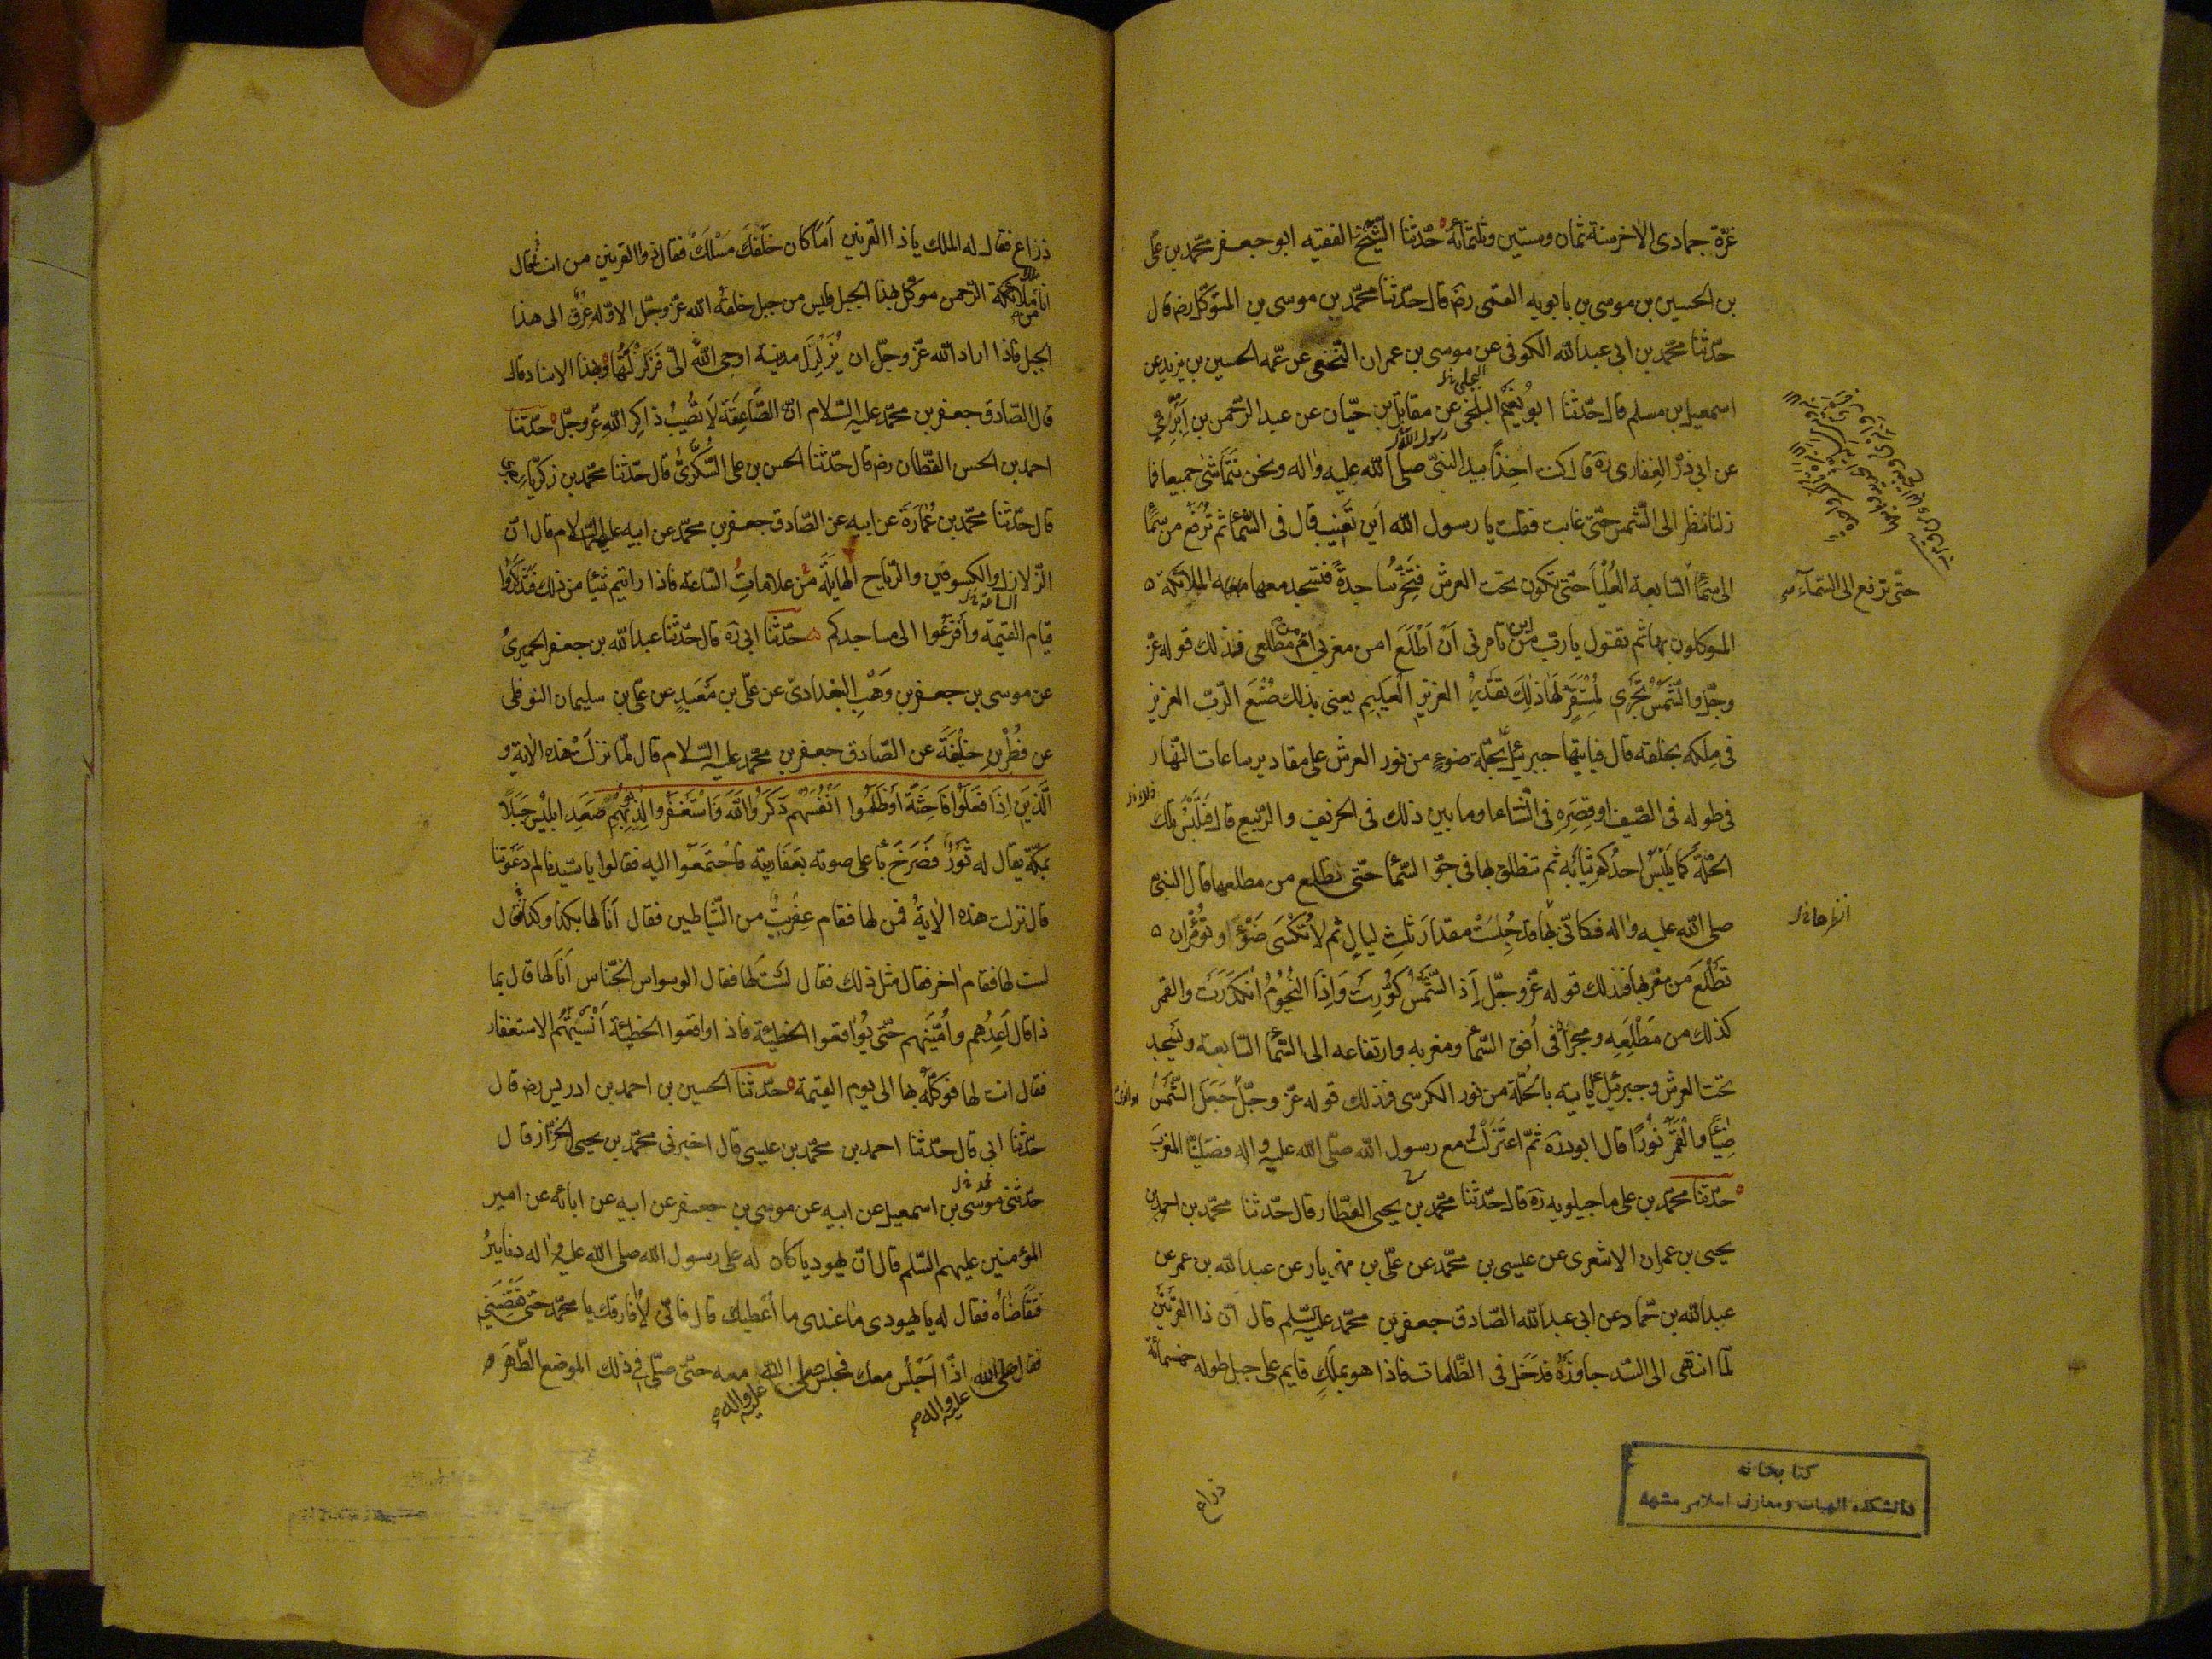 غرّة جمادى الاخر سنة ثمان وستين وثلثمائة حدّثنا الشّيخ الفقيه ابو جعفر محمّد بن على
بن الحسين بن موسى بن بابويه القمى رض قال حدّثنا محمّد بن موسى بن المتوكّل رض قال
حدّثنا محمّد بن ابى عبد الله الكوفى عن موسى بن عمران النّخعى عن عمّه الحسين بن يزيد عن
اسمعيل بن مسلم قال حدّثنا ابو نُعَيْم البلخى عن مقاتل بن حيّان عن عبد الرّحمن بن
عن ابى ذرّ الغِفارى ره قال كنت اخِذًا بيد النّبىّ صلى الله عليه واله ونحن نتماشى جميعا فما
زلنا ننظر الى الشّمس حتّى غابت فقلت يا رسول الله اين تَغيب قال فى السّماء ثم تُرفَع من سَماء
الى سماء السّابعة العُلْيا حتّى تكون تحت العرش فتَخِرُّ ساجدةً فتسجد معها الملائكة
حتّى ترفع الى السّمآء
الموكلون بها ثم تقول يا ربّ من اين تامرنى اَنْ اَطْلَعَ امن مغربى ام من مطلعى فذلك قوله عزّ
وجلّ والشّمسُ تَجْرِى لِمُسْتَقَرٍّ لَها ذلِكَ تَقْديرُ العَزيزِ العَليمِ يعنى بذلك صُنْعَ الرّبّ العزيز
فى ملكه بخلقه قال فياتيها جبرئيل بحُلّة ضوءٍ من نور العرش على مقادير ساعات النّهار
فى طوله فى الصّيف او قِصَرِه فى الشّتاء او ما بين ذلك فى الخريف والرّبيع قال فتَلْبَسُ تلك
الحلّة كما يَلْبَسُ احدُكم ثيابَه ثم تنطلق بها فى جوّ السّماء حتّى تطلع من مطلعها قال النبىّ
صلى الله عليه واله فكانّى بها قد حُبِسَتْ مقدارَ ثلثِ ليالٍ ثم لا تُكْسَى ضَوْءً وتُؤْمَرُ ان
تَطْلُعَ من مغربها فذلك قوله عزّ وجلّ اِذَا الشَّمْسُ كُوِّرَتْ وَاِذَا النُّجُومُ انْكَدَرَتْ والقمر
كذلك من مَطْلَعِه ومجراه فى اُفق السّماء ومغربه وارتفاعه الى السّماء السّابعة ويَسجد
تحت العرش وجبرئيل ياتيه بالحُلّة من نور الكرسى فذلك قوله عزّ وجلّ جَعَلَ الشَّمْسَ
ضِياءً والْقَمَرَ نُورًا قال ابو ذر ره ثمّ اعتَزَلْتُ مع رسول الله صلّى الله عليه واله فصَلّينا المغربَ
حدّثنا محمّد بن على ماجيلويه ره قال حدّثنا محمّد بن يحيى العطّار قال حدّثنا محمّد بن احمد بن
يحيى بن عمران الاشعرى عن عيسى بن محمّد عن علىّ بن مهزيار عن عبد الله بن عمر عن
عبد الله بن حمّاد عن ابى عبد الله الصّادق جعفر بن محمّد عليه السّلم قال انّ ذا القَرنَيْن
لمّا انتهى الى السّد جاوزَهُ فدَخَل فى الظّلمات فاذا هو بمَلَكٍ قايم على جبل طوله خمسمائة
انظرها خ ل
ذراع
كتابخانه
دانشكده الهيات ومعارف اسلامى مشهد
ذراع فقال له الملك يا ذا القرنين اَما كان خلْفَكَ مَسْلَكٌ فقال ذوا القرنين من انت فقال
انا من ملائكة الرّحمن موكّل بهذا الجبل وليس من جبل خلقه الله عزّ وجلّ الا وله عِرْق الى هذا
الجبل فاذا اراد الله عزّ وجلّ ان يُزَلْزِلَ مدينة اوحى اللهُ الىّ فَزَلْزَلْتُها وبهذا الاسناد قال
قال الصّادق جعفر بن محمّد عليه السّلام انّ الصَّاعِقَة لا تُصيبُ ذاكِر الله عزّ وجلّ حدّثنا
احمد بن الحسن القطّان رض قال حدّثنا الحسن بن على السُّكَّرىّ قال حدّثنا محمّد بن زكريّا
قال حدّثنا محمّد بن عُمارَةَ عن ابيه عن الصّادق جعفر بن محمّد عن ابيه عليهما السّلام قال انّ
الزّلازل والكسوفين والرّياح الهايلَة من علاماتِ السّاعة فاذا رايتم شيئا من ذلك فتَذَكّرُوا
قيام القيمة وافزعُوا الى مساجدكم حدّثنا ابى ره قال حدّثنا عبد الله بن جعفر الحميرىُ
عن موسى بن جعفر بن وَهْبِ البغدادىّ عن علىّ بن مَعْبَدٍ عن علىّ بن سليمان النوفلى
عن فُطْر بن خليفة عن الصّادق جعفر بن محمّد عليه السّلام قال لمّا نزلَتْ هذه الاية و
الَّذينَ اِذا فَعَلُوا فاحِشَةً اَوْ ظَلَمُوا اَنْفُسَهُمْ ذَكَرُوا اللّهَ فَاسْتَغْفَرُوا لِذُنُوبِهِمْ صَعِدَ ابليسُ جَبَلاً
بمكّة يقال له ثَوْرٌ فَصَرَخَ باَعلى صوته بعَفاريته فاجتَمَعُوا اليه فقالوا يا سيّدنا لم دَعَوْتنا
قال نزلت هذه الايةُ فمن لها فقام عِفْريتٌ من الشّياطين فقال اَنَا لها بكذا وكذا فقال
لست لها فقام اخر فقال مثل ذلك فقال لَسْتَ لها فقال الوسواس الخنّاس اَنَا لها قال بما
ذا قال اَعِدُهم واُمَنّيهم حتّى يُواقعوا الخطيئة فاذا واقعوا الخطيئة اَنْسَيْتُهُم الاستغفار
فقال انت لها فوكّلَه بها الى يوم القيمة حدّثنا الحسين بن احمد بن ادريس رض قال
حدّثنا ابى قال حدّثنا احمد بن محمّد بن عيسى قال اخبرنى محمّد بن يحيى الخزّاز قال
حدّثنى موسى بن اسمعيل عن ابيه عن موسى بن جعفر عن ابيه عن ابائه عن امير
المؤمنين عليهم السّلم قال انّ يهوديا كان له على رسول الله صلى الله عليه واله دنانيرُ
فتَقاضاه فقال له يا يهودى ما عندى ما اُعطيك قال فانّى لا اُفارقك يا محمّد حتى تَقْضِيَنى
فقال صلى الله عليه واله اذًا اَجْلُس معك فجلس صلى الله عليه واله معه حتّى صلّى فى ذلك الموضع الظّهرَ و